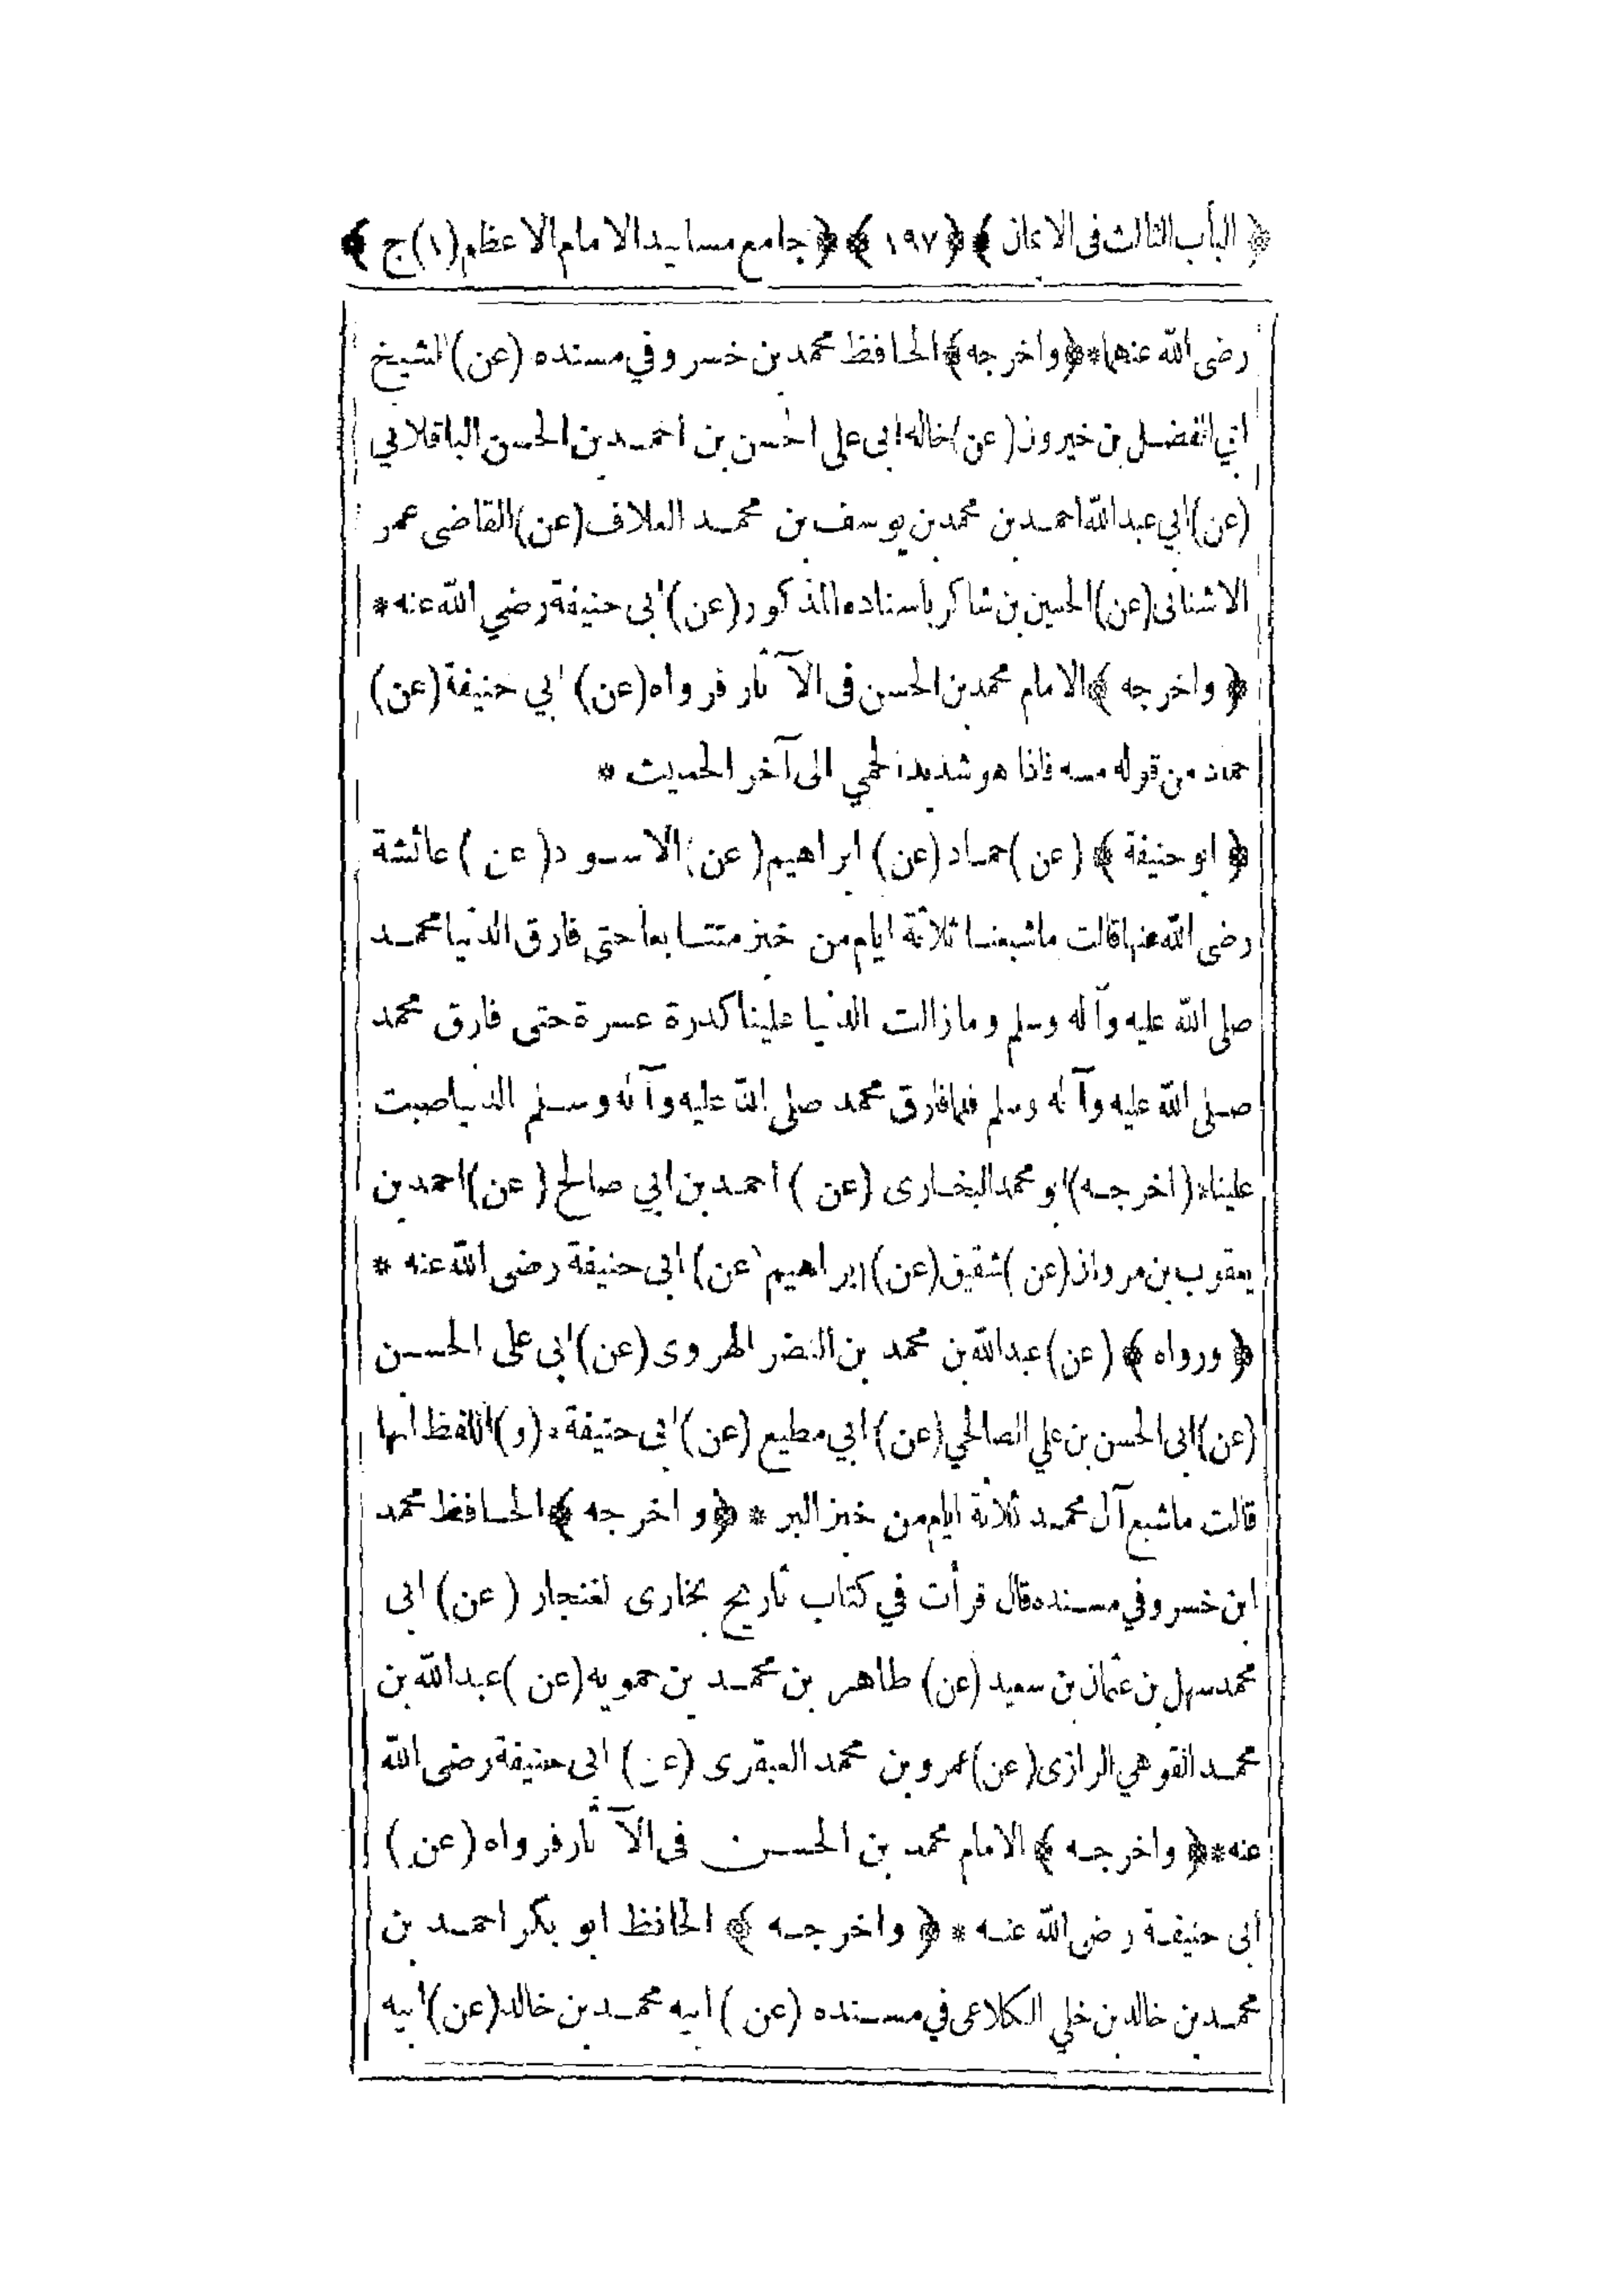 ﴿ الباب الثالث فى الايمان ﴾ ﴿ ١٩٧ ﴾ ﴿ جامع مسانيد الامام الاعظم (١) ج ﴾
رضى الله عنهما * ﴿ واخرجه ﴾ الحافظ محمد بن خسرو في مسنده (عن) الشيخ
ابي الفضل بن خيرون (عن) خاله ابى على الحسن بن احمد بن الحسن الباقلاني
(عن) ابي عبد الله احمد بن محمد بن يوسف بن محمد العلاف (عن) القاضى عمر
الاشنانى (عن) الحسين بن شاكر باسناده المذكور (عن) ابى حنيفة رضي الله عنه *
﴿ واخرجه ﴾ الامام محمد بن الحسن فى الآثار فرواه (عن) ابي حنيفة (عن)
حماد من قوله مسه فاذا هو شديد الحمي الى آخر الحديث *
﴿ ابو حنيفة ﴾ (عن) حماد (عن) ابراهيم (عن) الاسود (عن) عائشة
رضى الله عنها قالت ما شبعنا ثلاثة ايام من خبز متتابعا حتى فارق الدنيا محمد
صلى الله عليه وآله وسلم وما زالت الدنيا علينا كدرة عسرة حتى فارق محمد
صلى الله عليه وآله وسلم فلما فارق محمد صلى الله عليه وآله وسلم الدنيا صبت
علينا * (اخرجه) ابو محمد البخارى (عن) احمد بن ابي صالح (عن) احمد بن
يعقوب بن مروان (عن) شقيق (عن) ابراهيم (عن) ابى حنيفة رضى الله عنه *
﴿ ورواه ﴾ (عن) عبد الله بن محمد بن النضر الهروى (عن) ابى على الحسن
(عن) ابى الحسن بن علي الصالحي (عن) ابي مطيع (عن) ابى حنيفة * (و) اللفظ انها
قالت ما شبع آل محمد ثلاثة ايام من خبز البر * ﴿ واخرجه ﴾ الحافظ محمد
ابن خسرو في مسنده قال قرأت في كتاب تاريخ بخارى لغنجار (عن) ابى
محمد سهل بن عثمان بن سعيد (عن) طاهر بن محمد بن حمويه (عن) عبد الله بن
محمد القوهي الرازى (عن) عمرو بن محمد العبقرى (عن) ابى حنيفة رضى الله
عنه * ﴿ واخرجه ﴾ الامام محمد بن الحسن فى الآثار فرواه (عن)
ابى حنيفة رضى الله عنه * ﴿ واخرجه ﴾ الحافظ ابو بكر احمد بن
محمد بن خالد بن خلي الكلاعى في مسنده (عن) ابيه محمد بن خالد (عن) ابيه